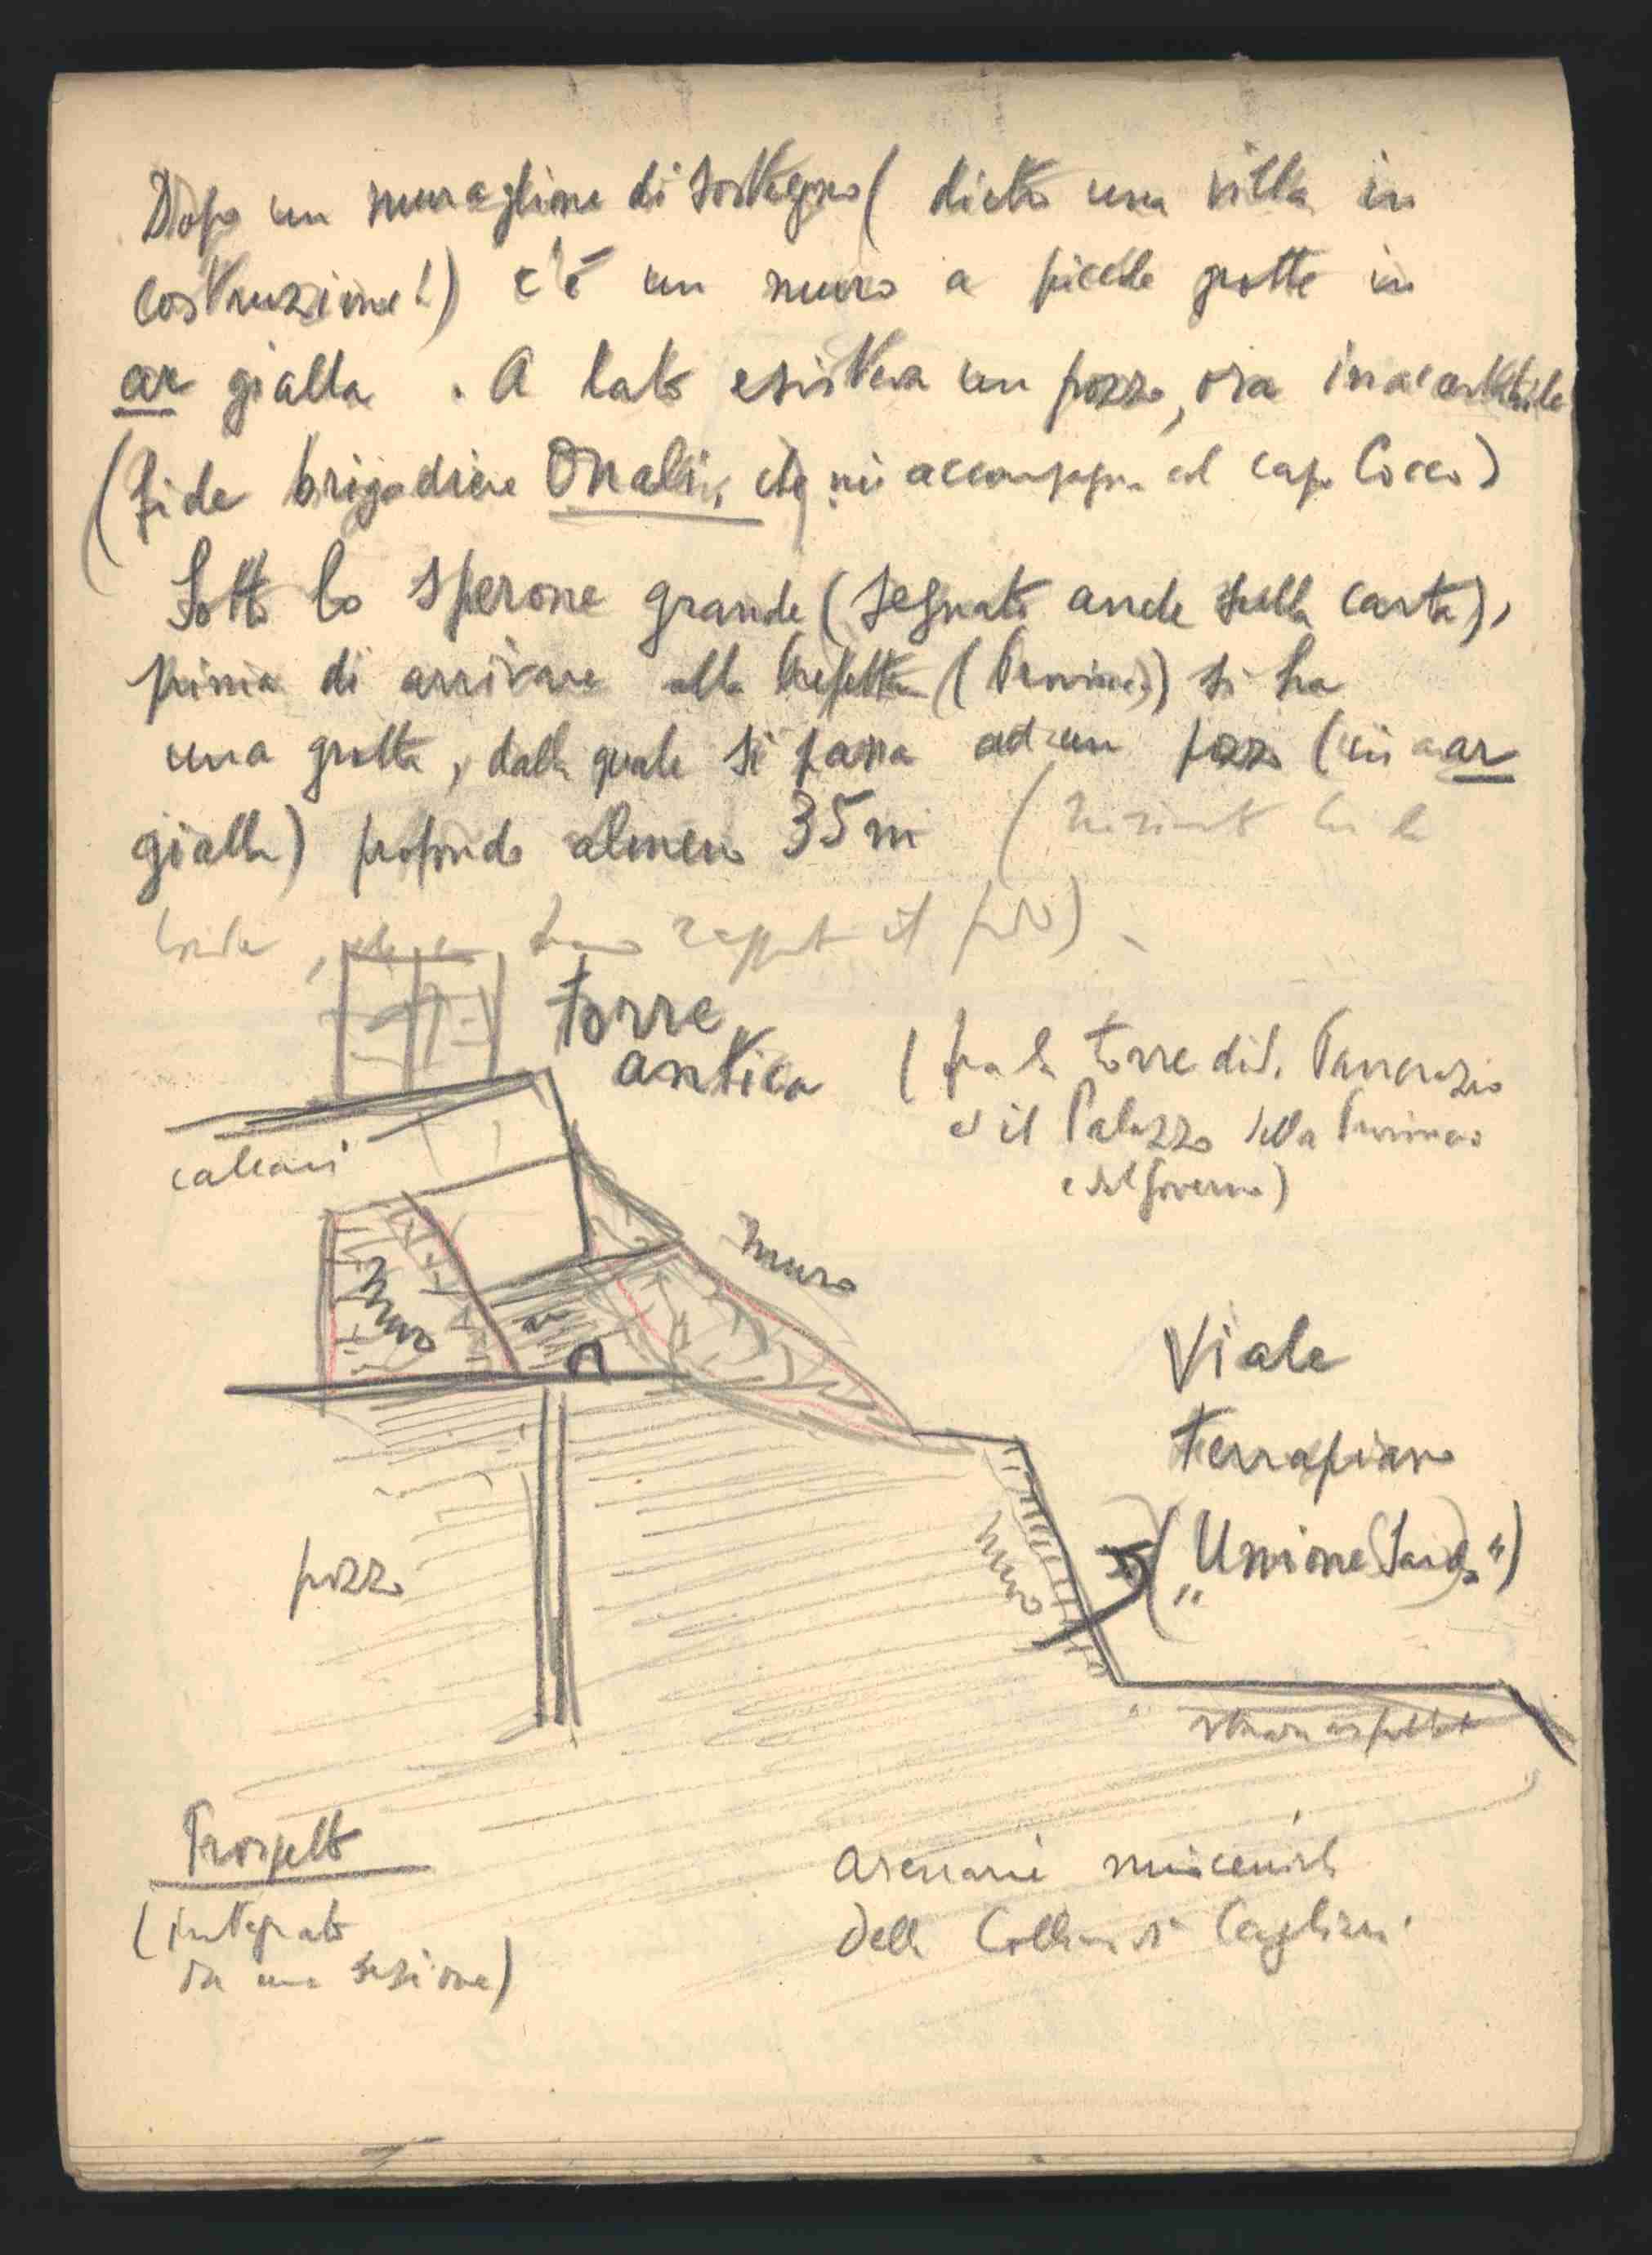 Dopo un muraglione di sostegno ( dietro una villa in
costruzione!) c'è un muro a piccole grotte in
ar gialla . A lato esisteva un pozzo, ora inaccertabile
(fide brigadiere Onalis, che mi accompagna col capo Cocco)
Sotto lo sperone grande (segnato anche sulla carta),
prima di arrivare alla Prefettura (Provincia) si ha
una grotta, dalla quale si passa ad un pozzo (in ar
gialla) profondo almeno 35 m
il fondo)
torre
antica
( fra la torre di S. Pancrazio
ed il Palazzo della Provincia
e del Governo)
calcari
muro
muro
ar
Viale
terrapieno
(„Unione Sarda")
muro
pozzo
strada asfaltata
Prospetto
(integrato
da una sezione)
Arenarie mioceniche
delle Colline di Cagliari